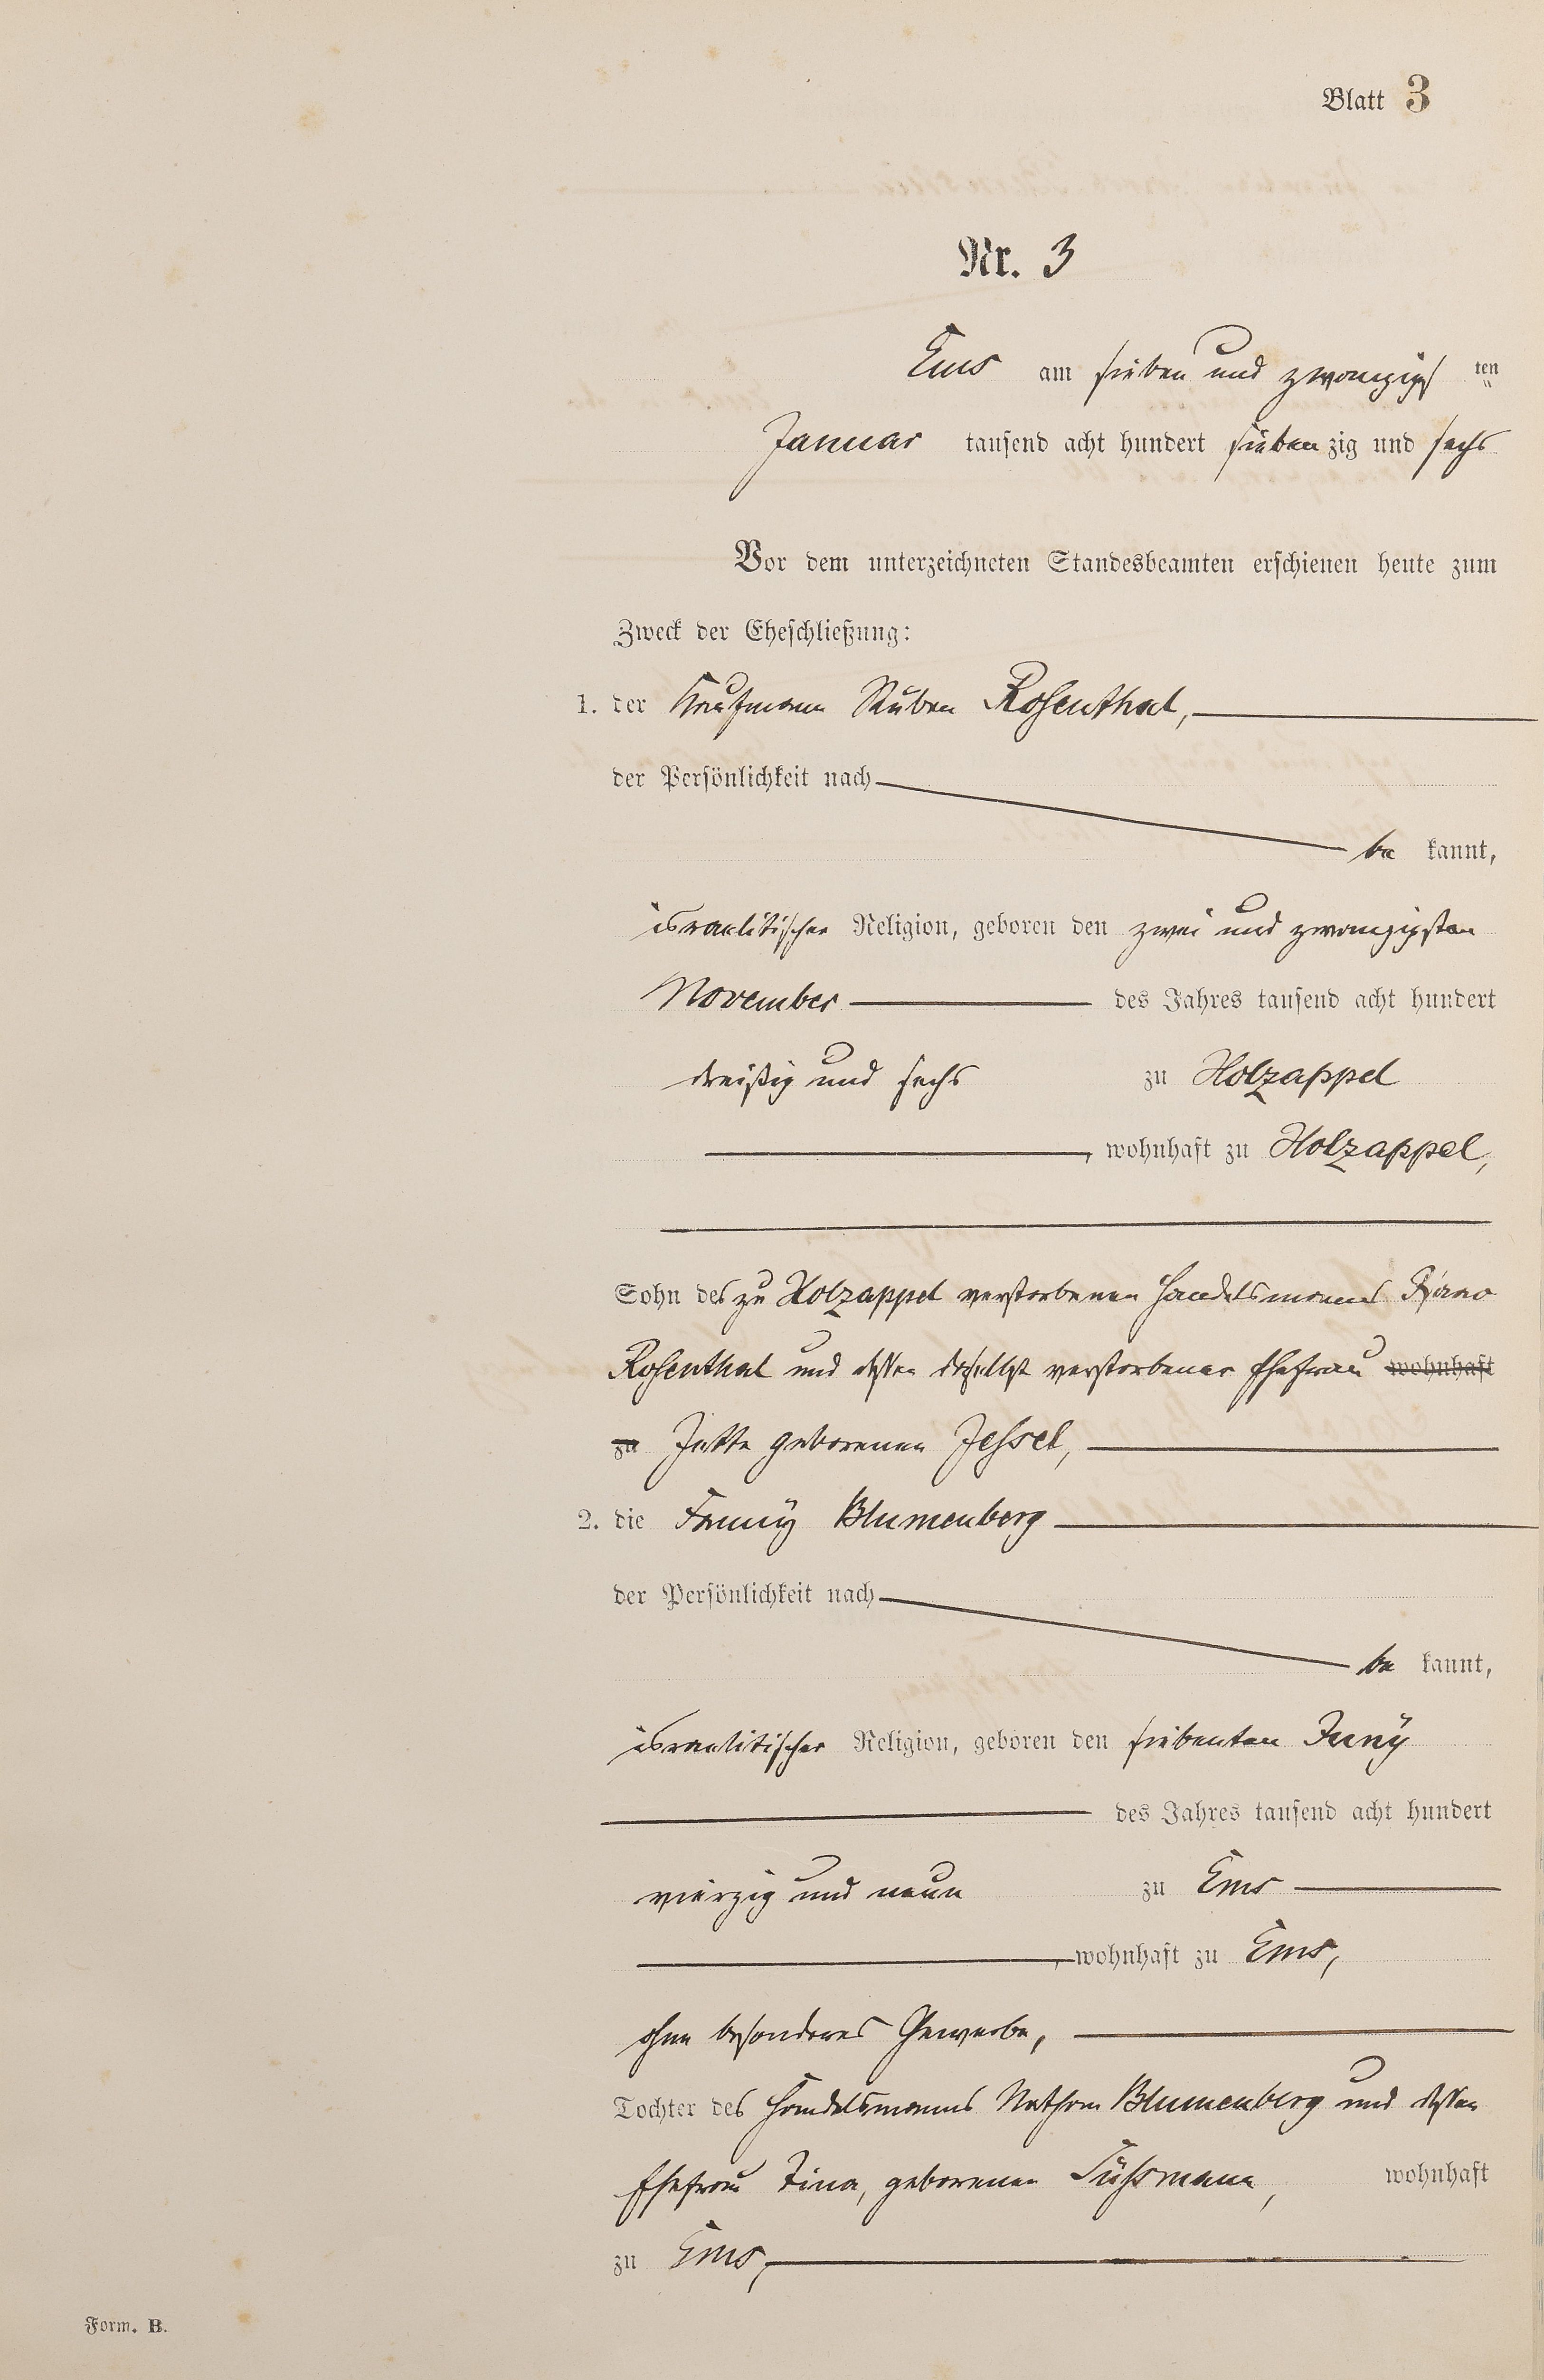 Blatt 3
Nr. 3
Ems am sieben und zwanzigs ten
Januar tausend acht hundert sieben zig und sechs
Vor dem unterzeichneten Standesbeamten erschienen heute zum
Zweck der Eheschließung:
1. der Kaufmann Ruben Rosenthal,
der Persönlichkeit nach
be kannt,
israelitischer Religion, geboren den zwei und zwanzigsten
November des Jahres tausend acht hundert
dreißig und sechs zu Holzappel
, wohnhaft zu Holzappel,
Sohn des zu Holzappel verstorbenen Handelsmanns
Rosenthal und dessen daselbst verstorbener Ehefrau wohnhaft
zu Jette geborenen Jessel,
2. die Fanny Blumenberg
der Persönlichkeit nach
be kannt,
israelitischer Religion, geboren den siebenten Juny
des Jahres tausend acht hundert
vierzig und neun zu Ems
, wohnhaft zu Ems,
ohne besonderes Gewerbe,
Tochter des Handelsmanns Nathan Blumenberg und dessen
Ehefrau Zina, geborenen Süssmann, wohnhaft
zu Ems,
Form. B.